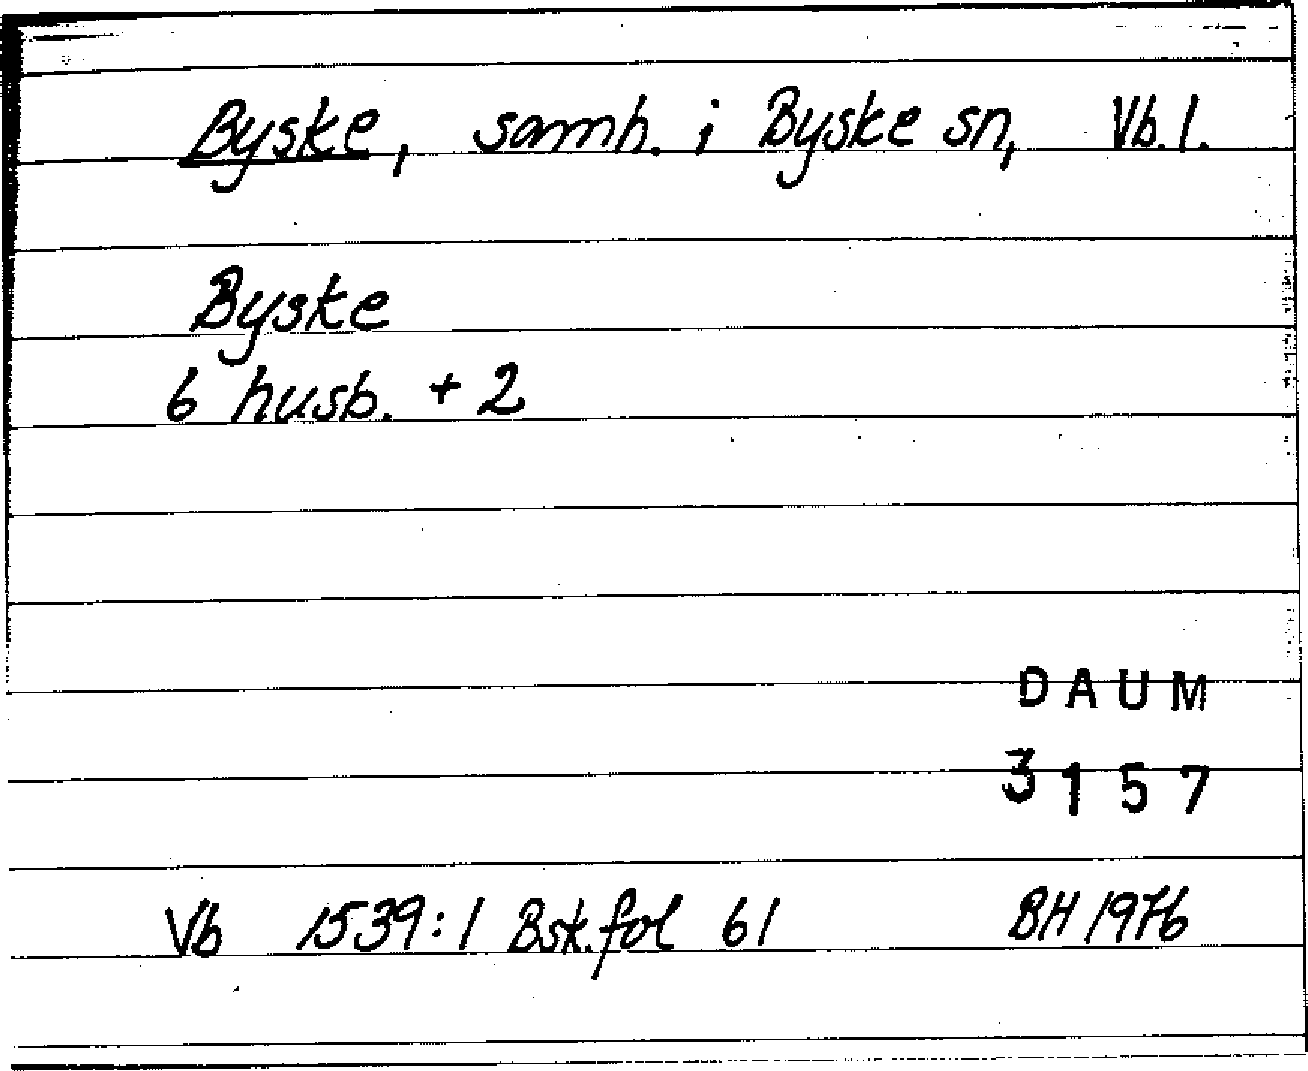 Byske, samh. i Byske sn, Vb. l.
Byske
6 husb. + 2
DAUM
3157
Vb 1539:1 Bsk. fol 61 BH 1976